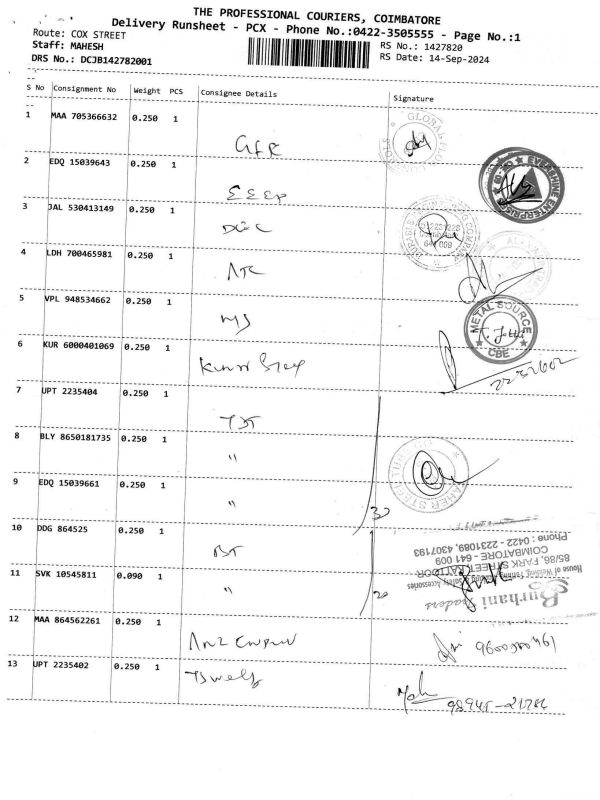 THE PROFESSIONAL COURIERS, COIMBATORE
Delivery Runsheet - PCX - Phone No.:0422-3505555 - Page No.:1
Route: COX STREET
Staff: MAHESH
DRS No.: DCJB142782001
RS No.: 1427820
RS Date: 14-Sep-2024
S No Consignment No Weight PCS Consignee Details Signature
1 MAA 705366632 0.250 1
2 EDQ 15039643 0.250 1
EVERSHINE ENTERPRISE
3 JAL 530413149 0.250 1
4 LDH 700465981 0.250 1
ATC
5 VPL 948534662 0.250 1
MS
METAL SOURCE
CBE
6 KUR 6000401069 0.250 1
7 UPT 2235404 0.250 1
8 BLY 8650181735 0.250 1
"
9 EDQ 15039661 0.250 1
"
30
10 DDG 864525 0.250 1
BT
11 SVK 10545811 0.090 1
"
20
Burhani Traders
85/86, PARK STREET,
COIMBATORE - 641 009
Phone : 0422 - 2231089, 4307193
12 MAA 864562261 0.250 1
13 UPT 2235402 0.250 1